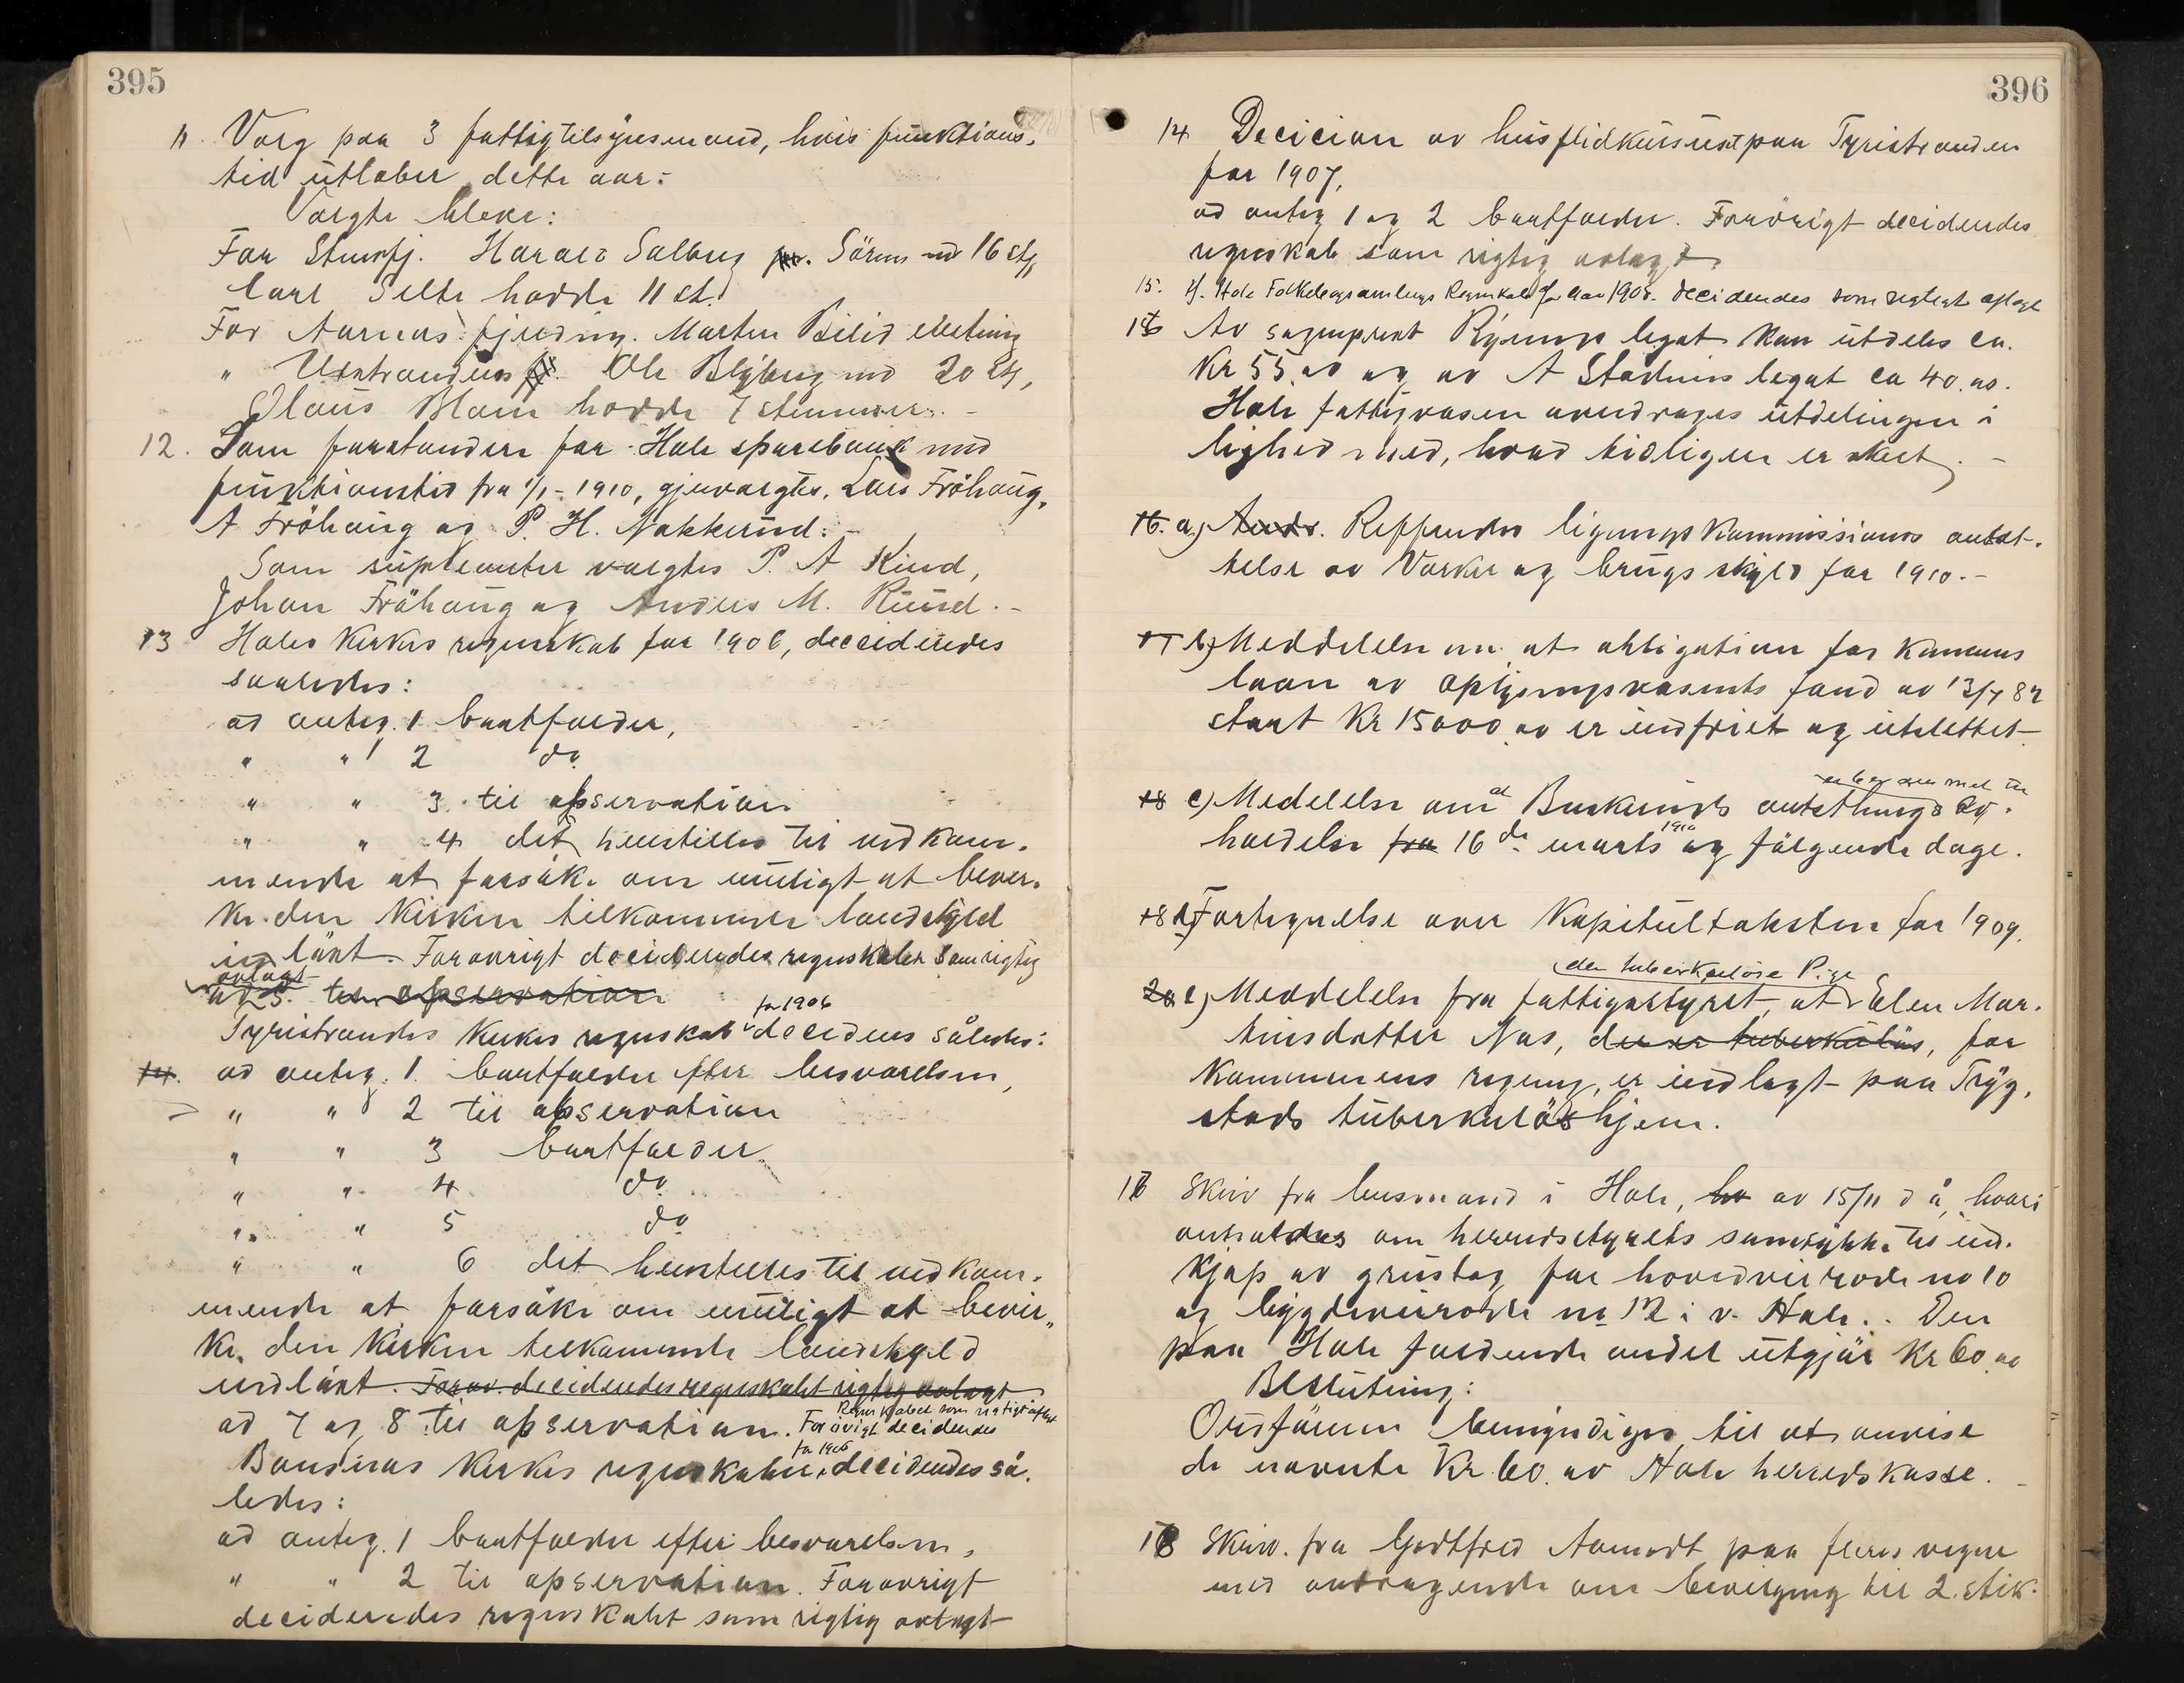 395
11. Valg paa 3 fattigtilsynsmænd, hvis funktions-
tid utløber dette aar:
Valgte bleve:
For Stensfj. Harald Solberg Sørum med 16 st,
Carl Selte hadde 11 st.
For Aarnæs fjerding. Martin Bilid
" Utstrandens Ole Blyberg med 20 st,
Olaus Moen hadde 7 stemmer. -
12. Som forstandere for Hole sparebank med
funktionstid fra 1/1-1910, gjenvalgtes Lars Fröhaug,
A Fröhaug og P. H. Nakkerud. -
Som suppleanter valgtes P. A Rud,
Johan Fröhaug og Anders M. Ruud. -
13 Holes kirkes regnskab for 1906, decideredes
saaledes:
ad anteg. 1 bortfalder,
" " 2 do
" " 3 til observation
" " 4 det henstilles til vedkom-
mende at forsøke om muligt at bevir-
ke den kirken tilkommende landskyld
indløst. Forøvrigt decideredes regnskabet som rigtig
avlagt
ad 5. til observation
Tyristrandes kirkes regnskab for 1906 decideres således:
14. ad anteg. 1. bortfalder efter besvarelsen,
" " 2 til observation
" " 3 bortfalder
" " 4 do
" " 5 do
" " 6 det henstilles til vedkom-
mende at forsøke om muligt at bevir-
ke den kirken tilkommende landskyld
indløst. Forøv. decideredes regnskabet rigtig avlagt
ad 7 og 8 til observation. Forøvrigt decideredes
Regnskabet som rigtigt aflagt
Bønsnes kirkes regnskaber for 1906 decideredes så-
ledes:
ad anteg. 1 bortfalder efter besvarelsen,
" " 2 til observation. Forøvrigt
decideredes regnskabet som rigtig avlagt
396
14 Decision av husflidkurset paa Tyristranden
for 1907,
ad anteg 1 og 2 bortfalder. Forøvrigt decideredes
regnskab som rigtig avlagt
15. Hole Folkebogsamlings Regnskab for Aar 1908. decideredes som rigtigt aflagt
16 Av sogneprest Ryennings legat kan utdeles ca.
Kr 55.00 og av A Stadums legat ca 40.00.
Hole fattigvæsen anmodes utdelingen i
lighed med, hvad tidligere er skeet. -
16. a) Andr. Reppendes ligningskommissions ansæt-
telse av Verker og brugs skyld for 1910. -
17 b) Meddelelse om at obligation for kommunens
laan av oplysningsvæsenets fond av 13/7 82
stort Kr 15000.00 er indfriet og utslettet
18 c) Medelelse om at Buskeruds amtsthings av-
holdelse fra 16de marts 1910 og følgende dage.
18 d) Fortegnelse over Kapitultaksten for 1909.
den tuberkuløse Pige
20 e) Meddelelse fra fattigstyret, at Elen Mar-
tinsdatter Næs, der er tuberkuløs, for
kommunens regning, er indlagt paa Tryg-
stads tuberkuløshjem.
17 Skriv fra lensmand i Hole, av 15/11 d å, hvori
anholdes om herredstyrets samtykke til ind-
kjøp av grustag for hovedveirode no 10
og bygdeveirode no 12 i v. Hole. Den
paa Hole faldende andel utgjør Kr 60.00
Beslutning:
Ordføreren bemyndiges til at anvise
de nævnte Kr. 60. av Hole herredskasse. -
18 Skriv. fra Godtfred Aamodt paa fleres vegne
med andragende om bevilgning til 2. stik-